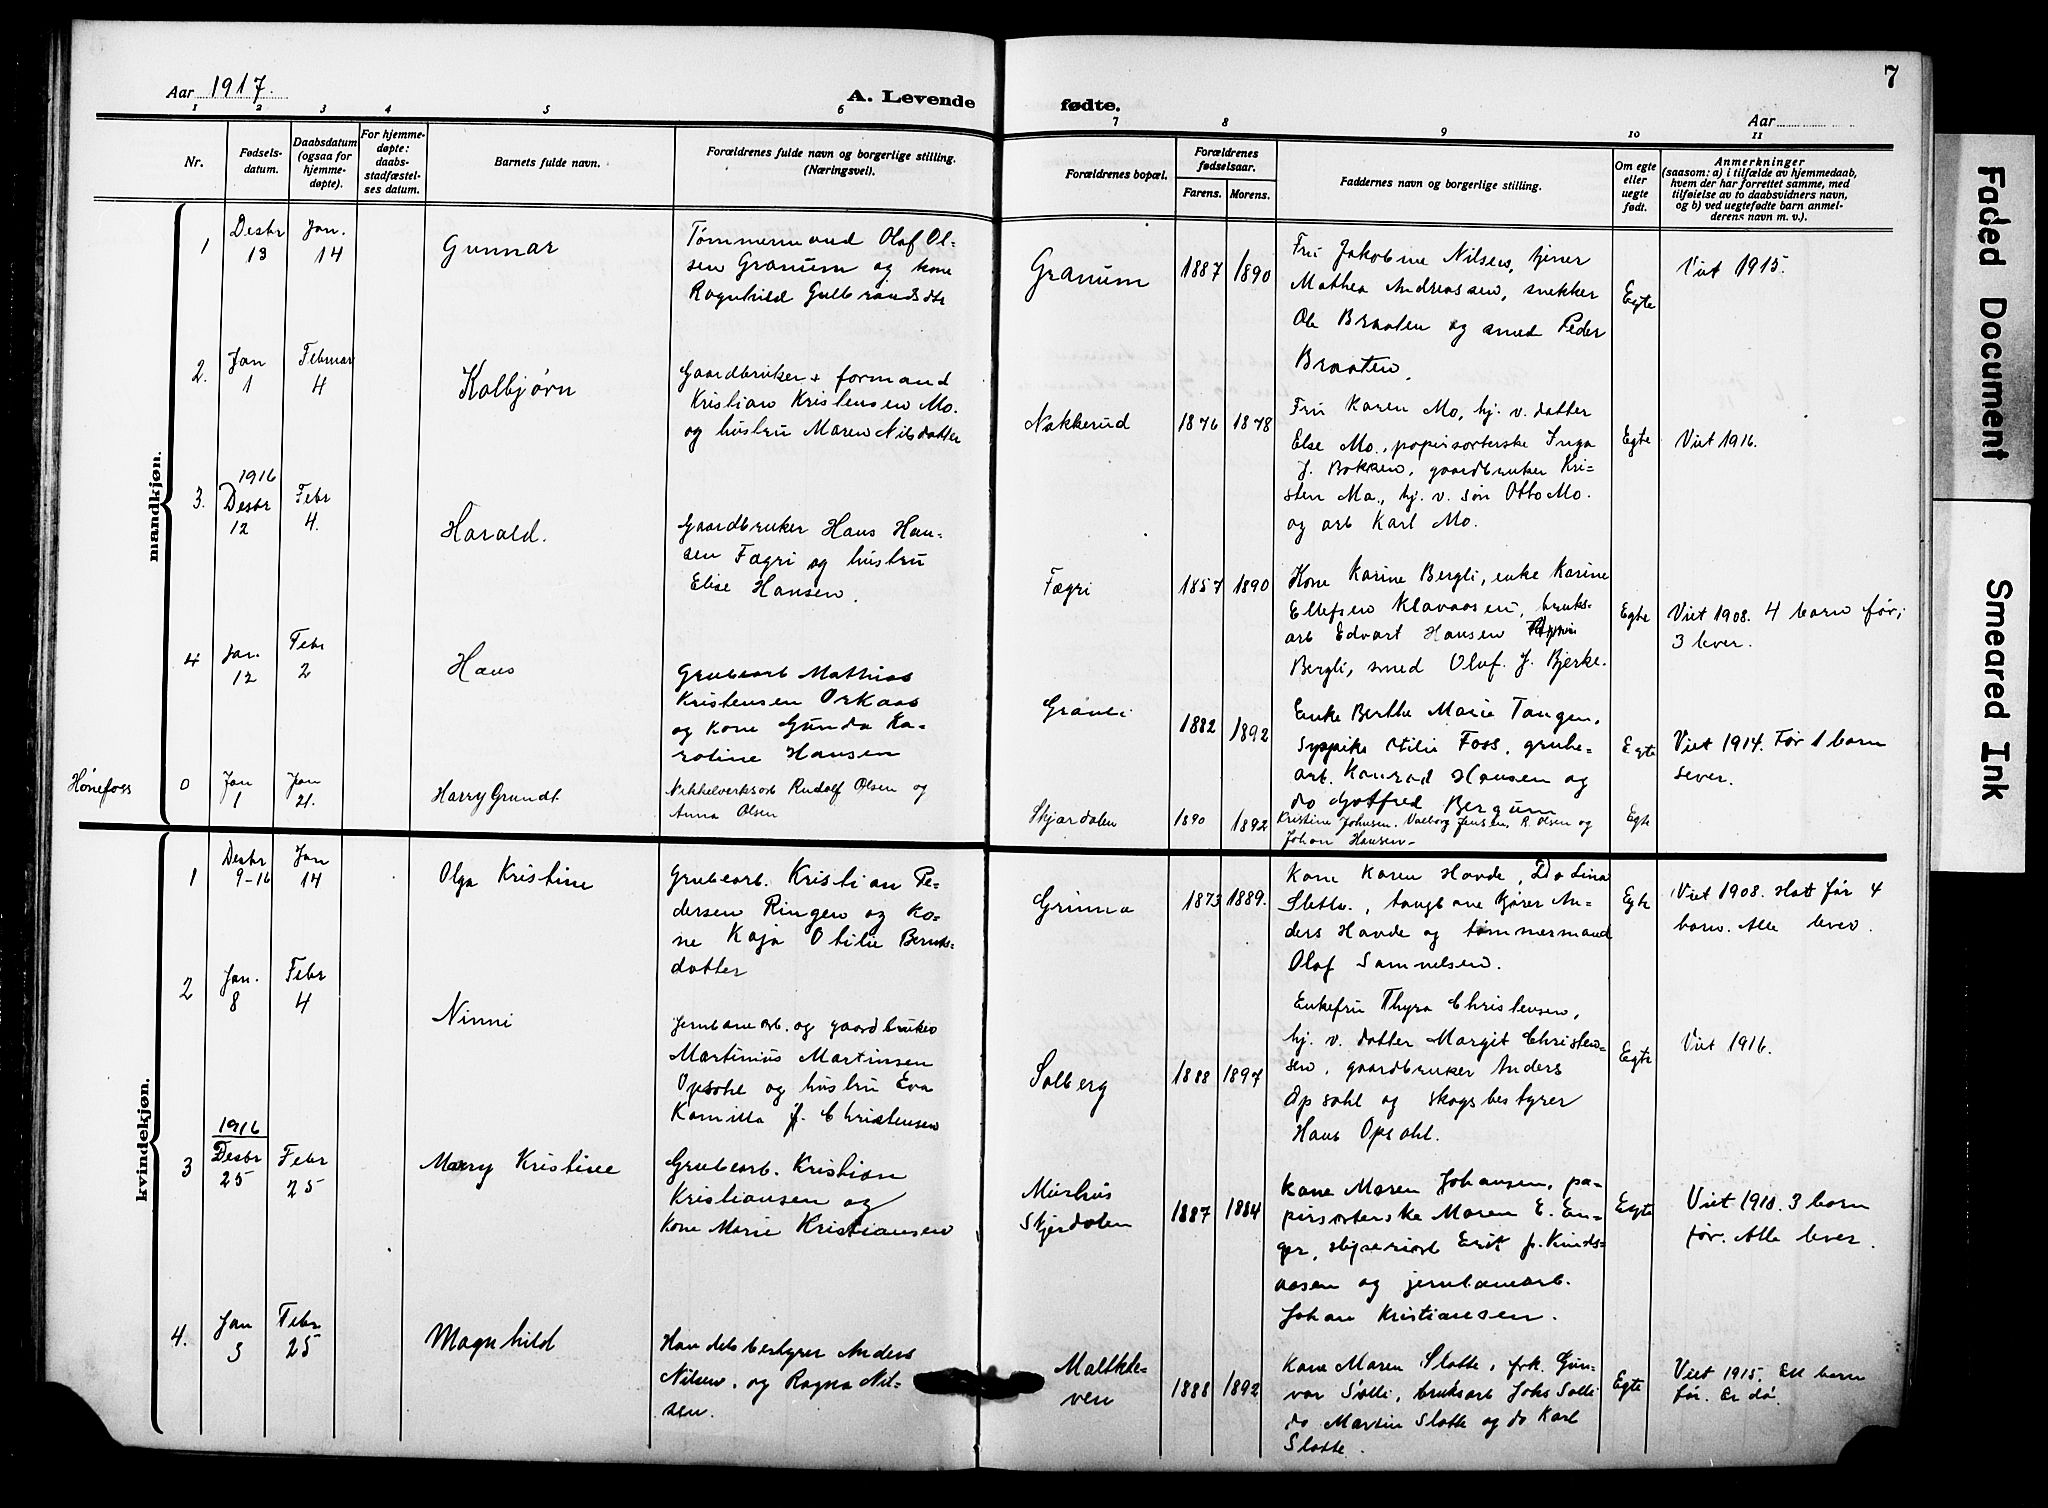 Aar 1917.
A. Levende fødte.
7
Aar
1 2 3 4 5 6 7 8 9 10 11
Nr.
Fødsels-
datum.
Daabsdatum
(ogsaa for
hjemme-
døpte).
For hjemme-
døpte:
daabs-
stadfæstel-
ses datum.
Barnets fulde navn.
Forældrenes fulde navn og borgerlige stilling.
(Næringsvei).
Forældrenes bopæl.
Forældrenes
fødselsaar.
Farens. Morens.
Faddernes navn og borgerlige stilling.
Om egte
eller
uegte
født.
Anmerkninger
(saasom: a) i tilfælde av hjemmedaab,
hvem der har forrettet samme, med
tilføielse av to daabsvidners navn,
og b) ved uegtefødte barn anmel-
derens navn m. v.).
mandkjøn.
1
Desbr
13
Jan.
14
Gunnar
Tømmermand Olaf Ol-
sen Granum og kone
Ragnhild Gulbrandsdtr
Granum
1887 1890
Fru Jakobine Nilsen, tjener
Mathea Andreassen, snekker
Ole Braaten og smed Peder
Braaten.
Egte
Viet 1915.
2.
Jan
1
Februar
4
Kolbjørn
Gaardbruker & formand
Kristian Kristensen Mo.
og hustru Maren Nilsdatter
Nakkerud
1876 1878
Fru Karen Mo, hj. v. datter
Else Mo, papirsorterske Inga
J. Bakken, gaardbruker Kri-
sten Mo., hj. v. søn Otto Mo.
og arb Karl Mo.
Egte
Viet 1916.
3.
1916
Desbr
12
Febr
4.
Harald.
Gaardbruker Hans Han-
sen Fagri og hustru
Elise Hansen.
Fægri
1857 1890
Kone Karine Bergli, enke Karine
Ellefsen Klavaasen, bruks-
arb Edvart Hansen
Bergli, smed Olaf. J. Bjerke.
Egte
Viet 1908. 4 barn før;
3 lever.
4
Jan.
12
Febr
2
Hans
Grubearb Mathias
Kristensen Orkaas
og Kone Gunda Ka-
roline Hansen
1882 1892
Enke Berthe Marie Tangen,
Sypike Otilie Foss, grube-
arb. Konrad Hansen og
do Gotfred Bergum
Egte
Viet 1914. Før 1 barn
lever.
Hønefoss
0
Jan
1
Jan
21.
Harry Grundt.
Nikkelverksarb Rudolf Olsen og
Anna Olsen
Skjærdalen
1890 1892
Kristine Johnsen. Valborg Jensen, R. Olsen og
Johan Hansen-
Egte
kvindekjøn.
1
Desbr
9-16
Jan
14
Olga Kristine
Grubearb. Kristian Pe-
dersen Ringen og Ko-
ne Kaja Otilie Bernts-
datter
Grinna
1873 1889.
Kone Karen Havde, Do Lina
Slette, taugbane kjører An-
ders Havde og tømmermand
Olaf Samuelsen.
Egte
Viet 1908. Hatt før 4
barn. Alle lever.
2
Jan.
8
Febr
4
Ninni
Jernbanearb. og gaardbruker
Martinius Martinsen
Opsahl og hustru Eva
Kamilla J. Christensen
Solberg
1888 1897
Enkefru Thyra Christensen,
hj. v. datter Margit Christen-
sen, gaardbruker Anders
Opsahl og skogsbestyrer
Hans Opsahl.
Egte
Viet 1916.
3
1916
Desbr
25
Febr
25
Marry Kristine
Grubearb. Kristian
Kristiansen og
Kone Marie Kristiansen
Murhus
Skjerdalen
1887 1884
Kone Maren Johansen, pa-
pirsorterske Maren E. En-
ger, sliperiarb Erik p. Kinds-
aasen og jernbanearb.
Johan Kristiansen.
Egte
Viet 1910. 3 barn
før. Alle lever.
4.
Jan
3
Febr
25
Magnhild
Handelsbestyrer Anders
Nilsen. og Ragna Nil-
sen.
Maltkle-
ven
1888 1892
Kone Maren Slatte, frk. Gun-
vor Sølli, bruksarb Johs Sølli
do Martin Slatte og do Karl
Slatte.
Egte
Viet 1915. Ett barn
før. Er dø.
Faded Document
Smeared Ink